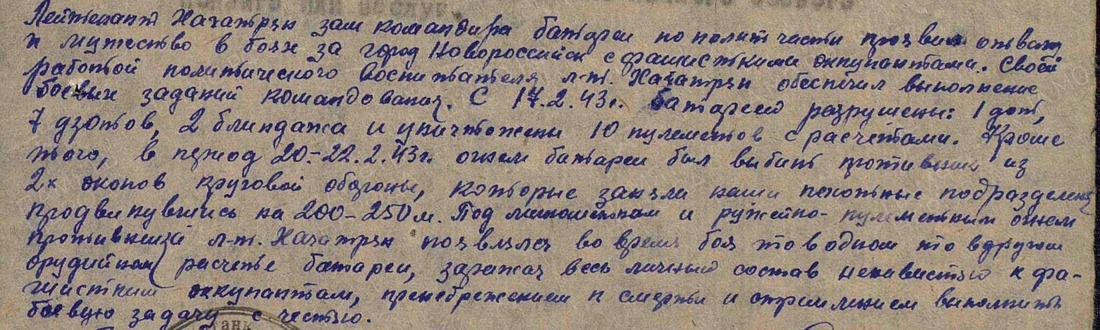 Лейтенант Хачатрян зам командира батареи по политчасти проявил отвагу
и мужество в боях за город Новороссийск с фашисткими оккупантами. Своей
работой политического воспитателя л-т. Хачатрян обеспечил выполнение
боевых заданий командования. С 17.2.43г. батареей разрушены: 1 дот,
7 дзотов, 2 блиндажа и уничтожены 10 пулеметов с расчетами. Кроме
того, в период 20-22.2.43г. огнем батареи был выбит противник из
2х окопов круговой обороны, которые заняли наши пехотные подразделения
продвинувшись на 200-250м. Под минометным и ружейно-пулеметным огнем
противника л-т. Хачатрян появлялся во время боя то в одном то в другом
орудийном расчете батареи, заражая весь личный состав ненавистью к фа-
шистким оккупантам, пренебрежением к смерти и стремлением выполнить
боевую задачу с честью.
танк